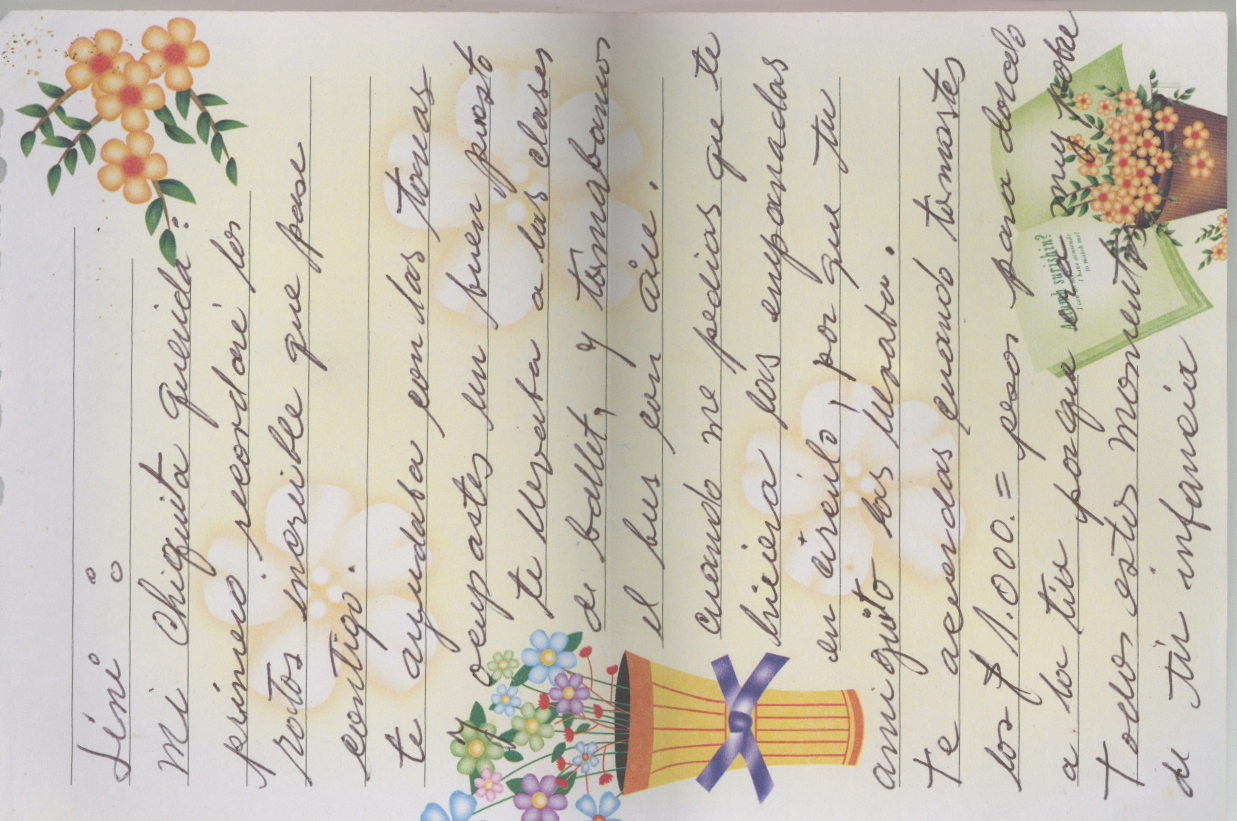 mi Chiquita querida:
primero. recordaré los
ratos increible que pase
contigo.
te ayudaba con las tareas
y ocupastes un buen puesto
te llevaba a las clases
de ballet, y tomabamos
el bus con aire.
cuando me pedias que te
hiciera las empanadas
en circulo, por que tu
amiguito las
te acuerdas cuando tomastes
los $ 1.000.= pesos para darcelo
a la tia porque era muy pobre
Todos estos momentos
de tu infancia